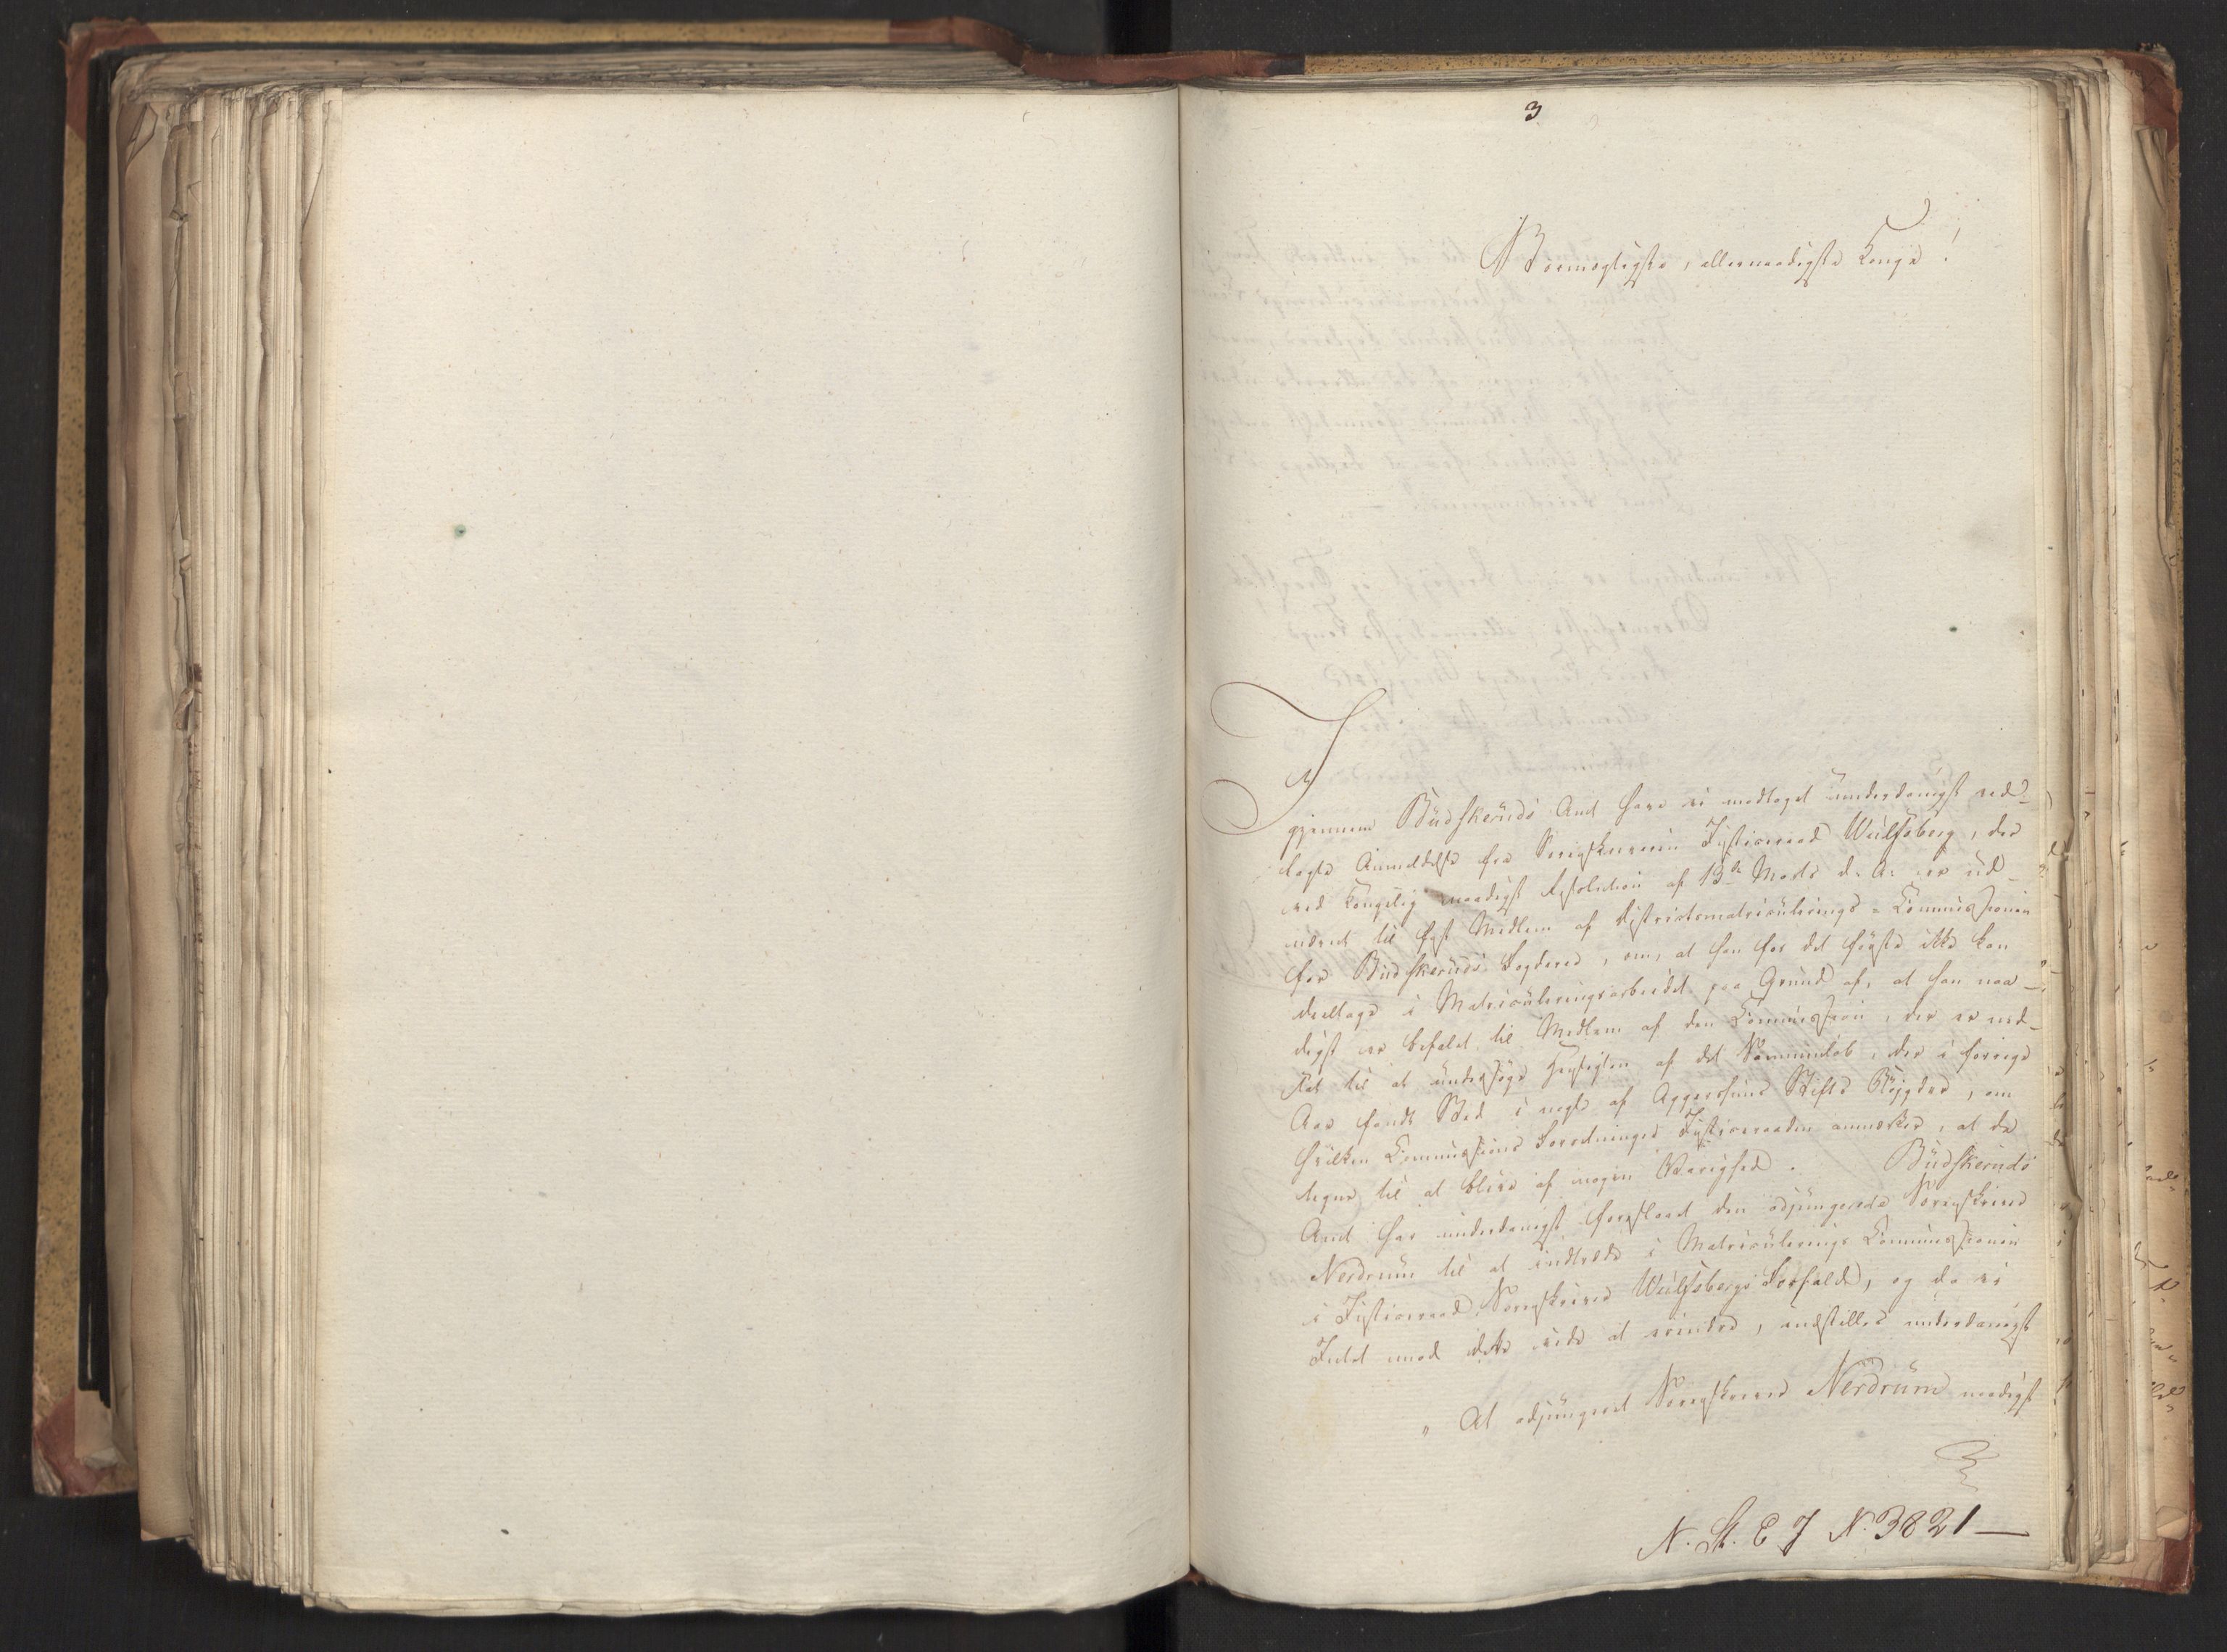 3
Stormægtigste, allernaadigste Konge!
I
gjennem Budskeruds Amt have vi modtaget underdanigst ved-
lagte Anmeldelse fra Sorenskriveren Justitsraad Wulfsberg, der
ved Kongelig naadigst Resolution af 13de Marts d. A. er ud-
nævnt til fast Medlem af Districtsmatriculerings-Commissionen
for Budskeruds Fogderie, om, at han for det første ikke kan
deeltage i Matriculeringsarbeidet paa Grund af, at han naa-
digst er befalet til Medlem af den Commission, der er ned-
sat til at undersøge Hensigten af det Sammenløb, der i forrige
Aar fandt Sted i nogle af Aggershuus Stifts Bøigder, om
hvilken Commissions Forretninger Justitsraaden anmærker, at de
tegne til at blive af nogen Varighed. Budskeruds
Amt har underdanigst foreslaaet den adjungerede Sorenskriver
Nerdrum til at indtræde i Matriculerings Commissionen
i Justitsraad Sorenskriver Wulfsbergs Forfald, og da vi
Intet mod dette vide at erindre, indstilles underdanigst
„ At adjungeret Sorenskriver Nerdrum naadigst
N. St. E J N. 3821 —